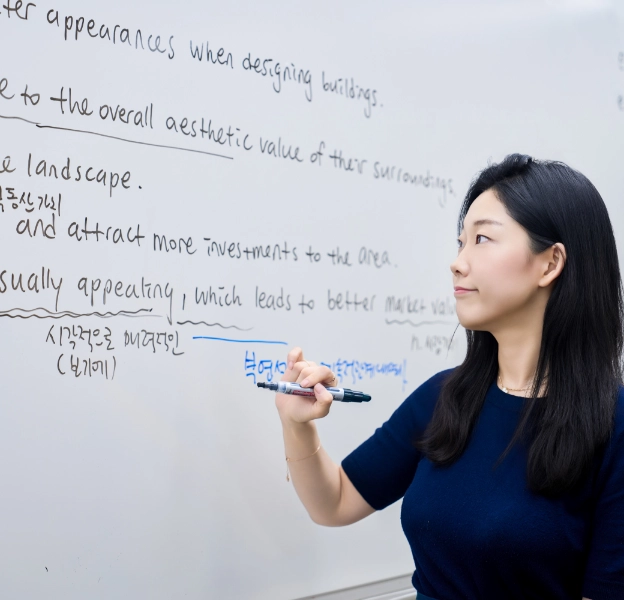 ter appearances when designing buildings.
e to the overall aesthetic value of their surroundings.
e landscape.
and attract more investments to the area.
sually appealing, which leads to better market
시각적으로 매력적인
(보기에)